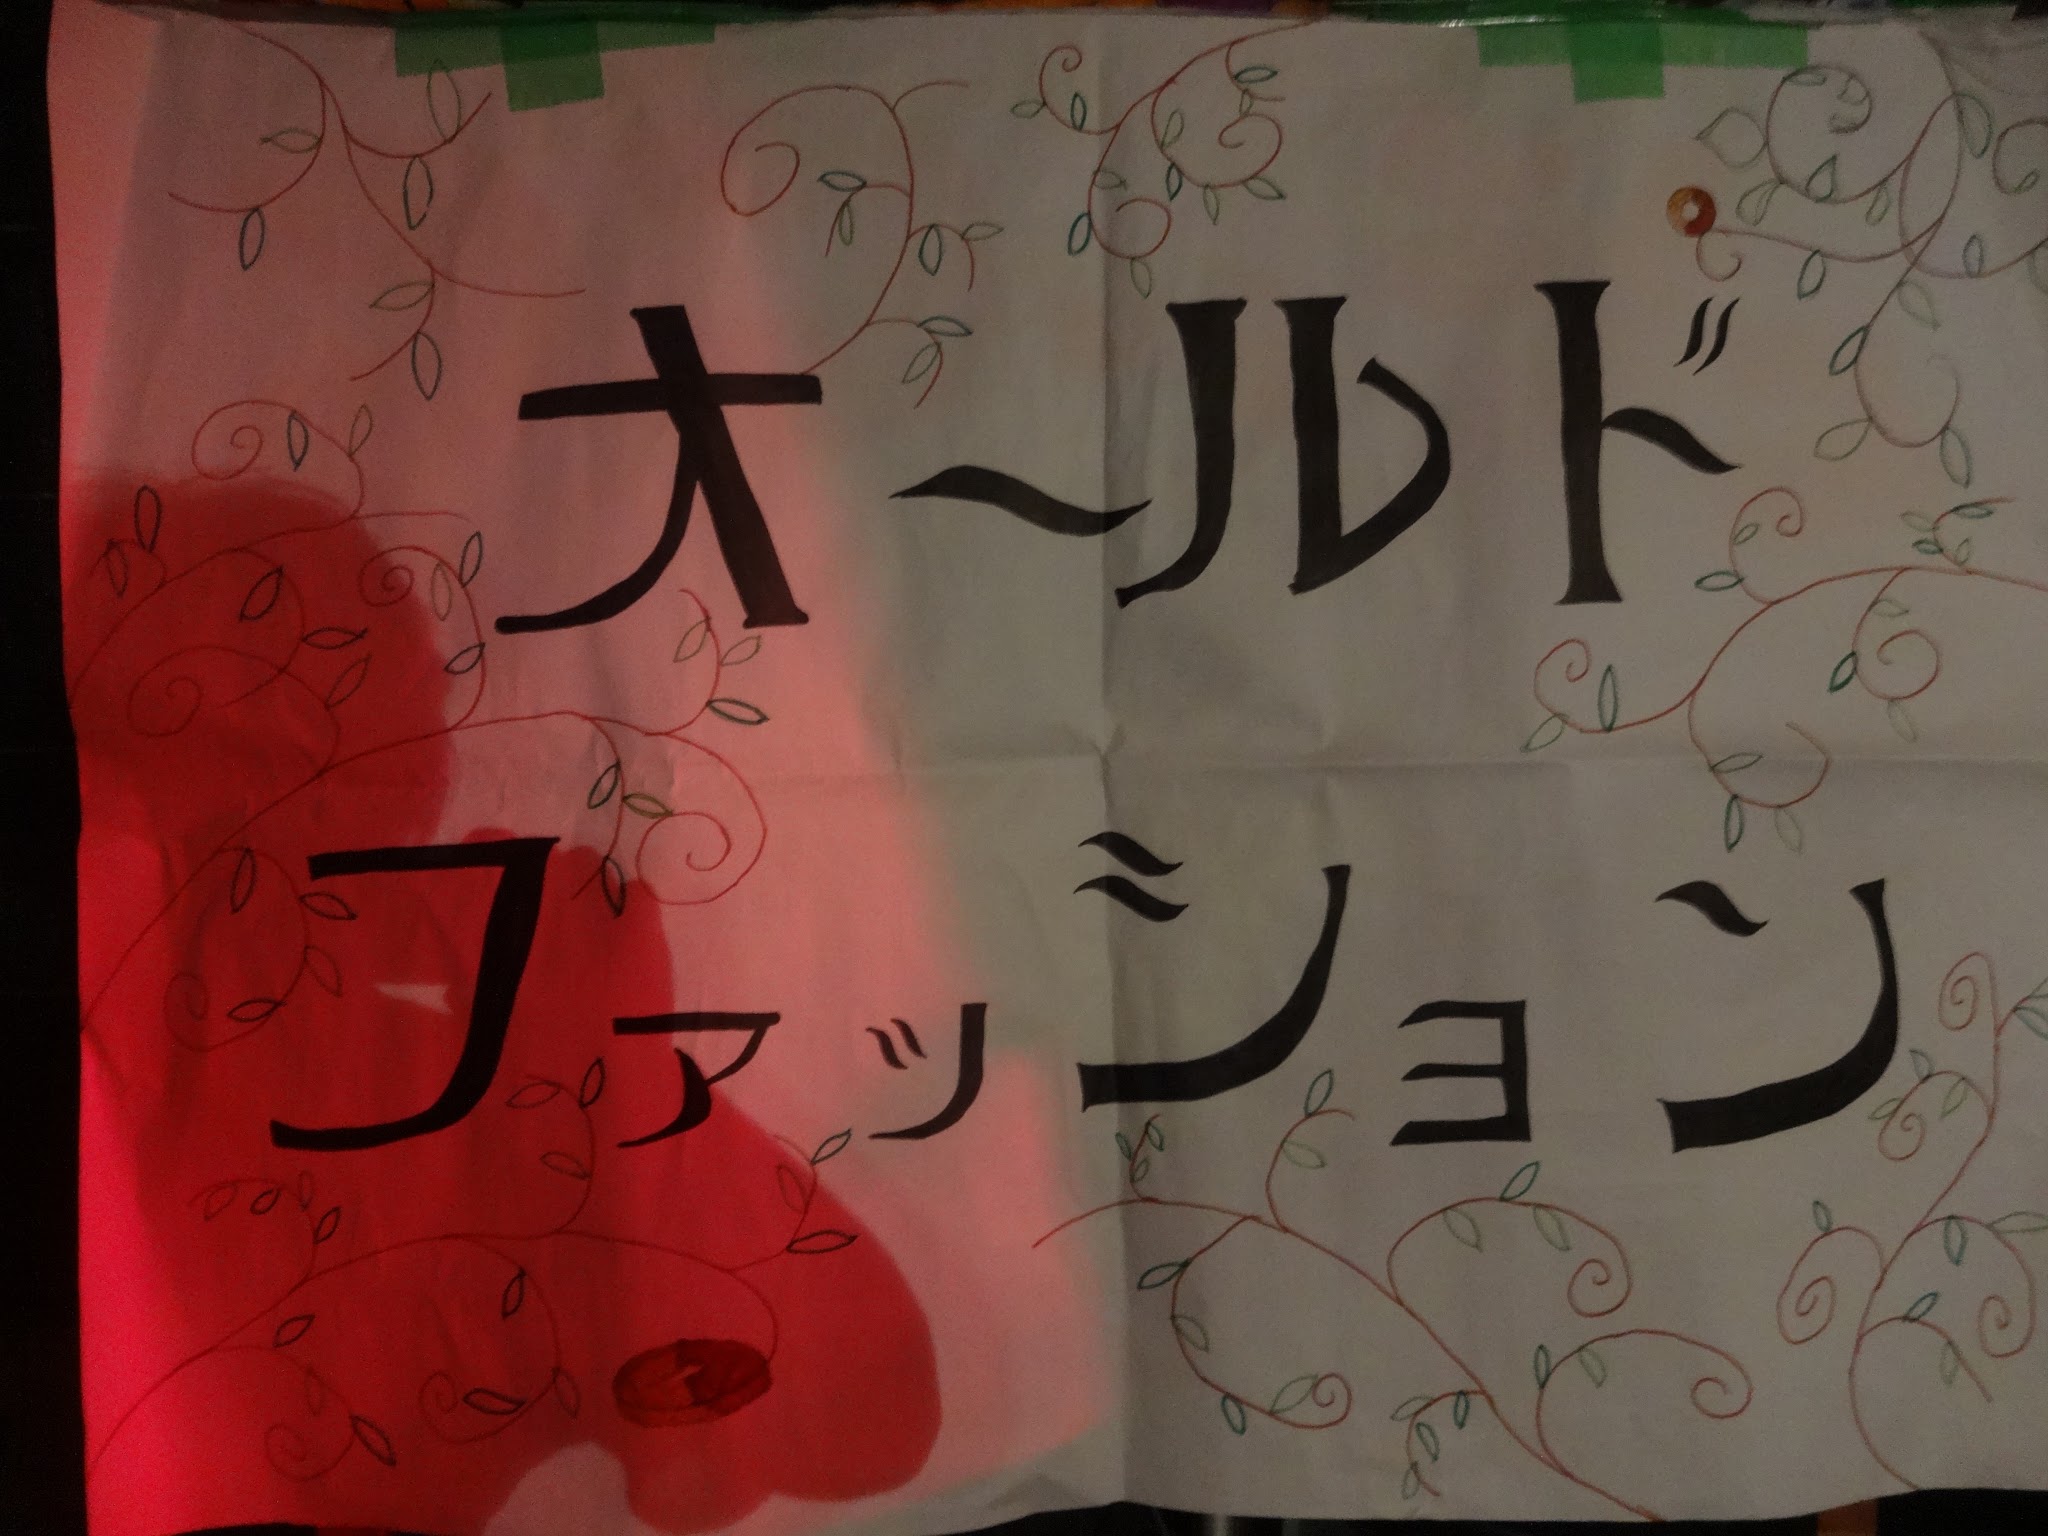 オールド
ファッション